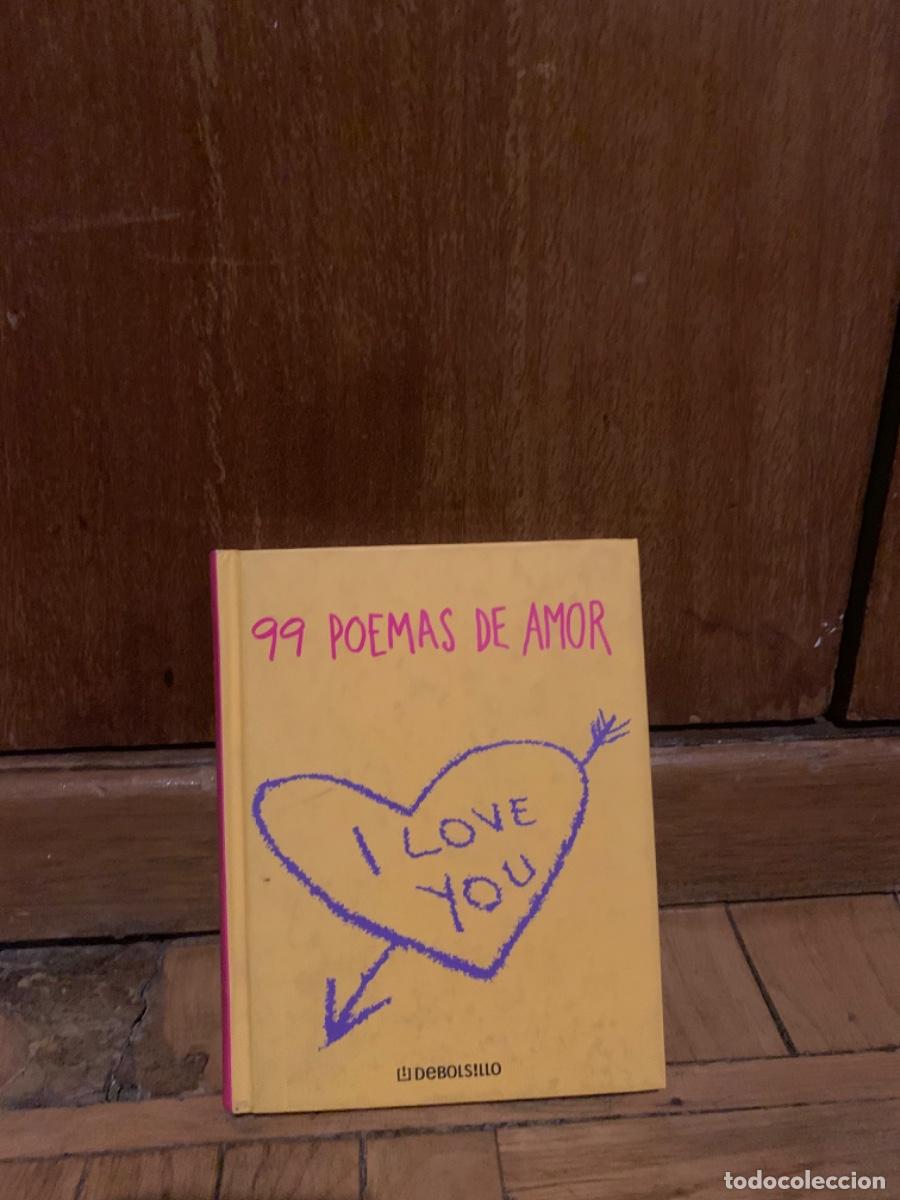 99 POEMAS DE AMOR
I LOVE
YOU
DEBOLS!LLO
todocoleccion